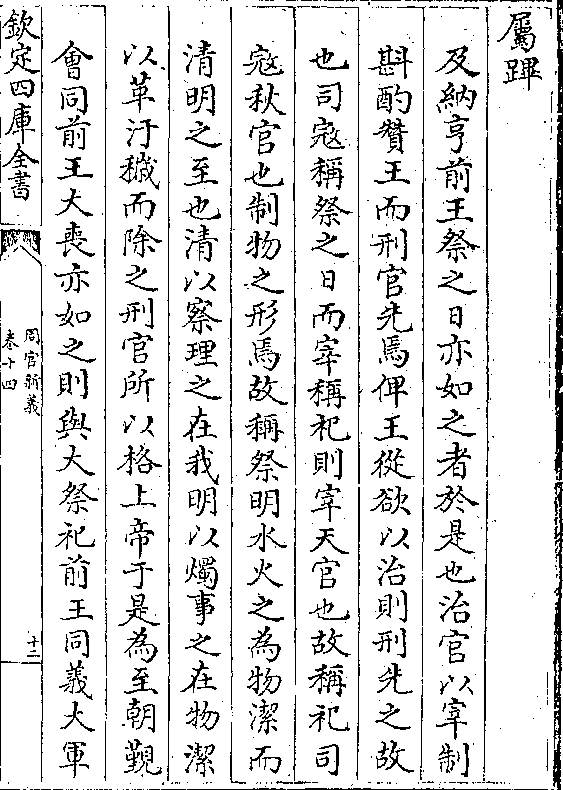 屬蹕
及納亨前王祭之日亦如之者於是也治官以宰制
斟酌贊王而刑官先焉俾王從欲以治則刑先之故
也司寇稱祭之日而宰稱祀則宰天官也故稱祀司
寇秋官也制物之形焉故稱祭明水火之為物潔而
清明之至也清以察理之在我明以燭事之在物潔
以革汙穢而除之刑官所以格上帝于是為至朝覲
會同前王大喪亦如之則與大祭祀前王同義大軍
欽定四庫全書
周官新義
卷十四
十二